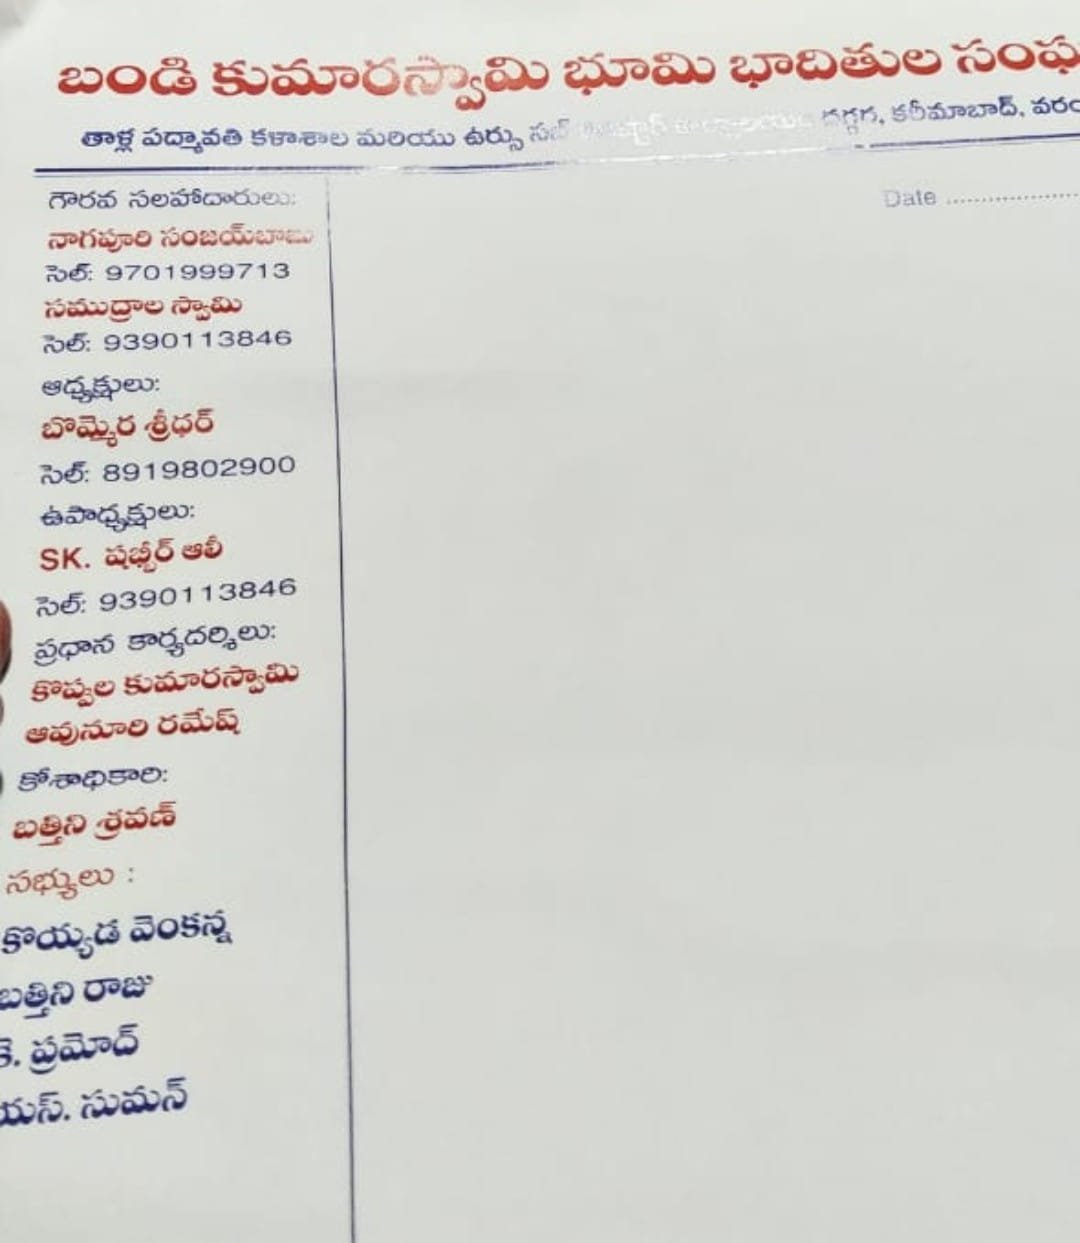 బండి కుమారస్వామి భూమి భాదితుల సంఘ
తాళ్ల పద్మావతి కళాశాల మరియు ఉర్సు సబ్ దగ్గర, కరీమాబాద్, వరం
Date ....................
గౌరవ సలహాదారులు:
నాగపూరి సంజయ్‌బాబు
సెల్: 9701999713
సముద్రాల స్వామి
సెల్: 9390113846
ఆధ్యక్షులు:
బొమ్మెర శ్రీధర్
సెల్: 8919802900
ఉపాధ్యక్షులు:
SK. షబ్బీర్ ఆలీ
సెల్: 9390113846
ప్రధాన కార్యదర్శిలు:
కొప్పుల కుమారస్వామి
ఆవునూరి రమేష్
కోశాధికారి:
బత్తిని శ్రవణ్
సభ్యులు :
కొయ్యడ వెంకన్న
బత్తిని రాజు
కె. ప్రమోద్
యస్. సుమన్